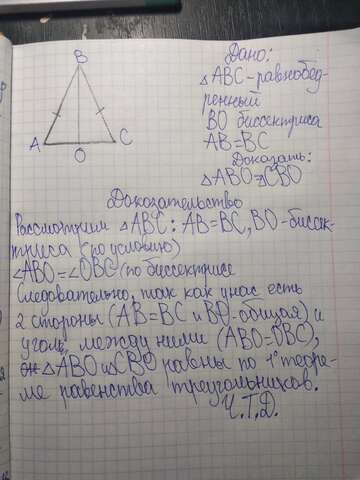 B
A
C
O
Дано:
△ABC-равнобед-
ренный
BO биссектриса
AB=BC
Доказать:
△ABO=△CBO
Доказательство
Рассмотрим △ABC: AB=BC, BO-биссек-
триса (по условию)
∠ABO=∠OBC (по биссектрисе
Следовательно, так как у нас есть
2 стороны (AB=BC и BO-общая) и
угол между ними (ABO=OBC),
△ABO и △CBO равны по 1 теоре-
ме равенства треугольников.
Ч.Т.Д.